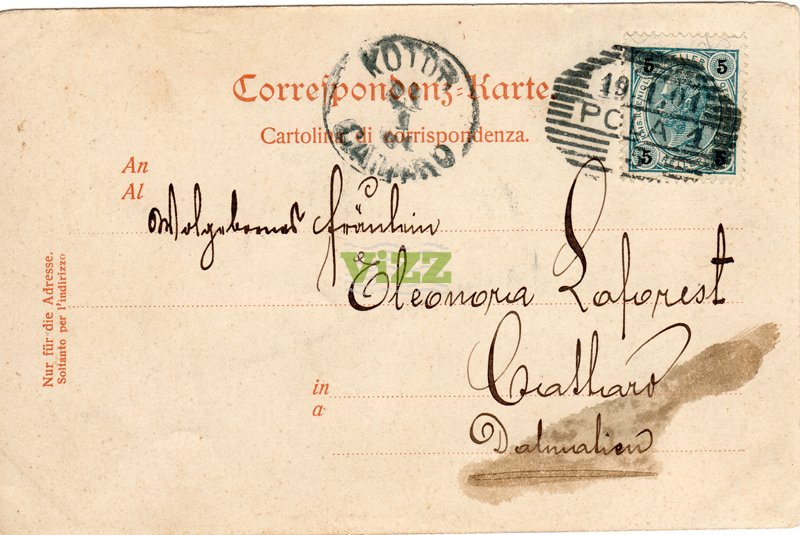 Correspondenz-Karte
Cartolina di corrispondenza.
KOTOR
CATTARO
5 5
5 5
An
Al
Wolgebornes fräulein
ViZZ
Eleonora Laforest
in
a
Cattaro
Dalmatien
Nur für die Adresse.
Soltanto per l'indirizzo